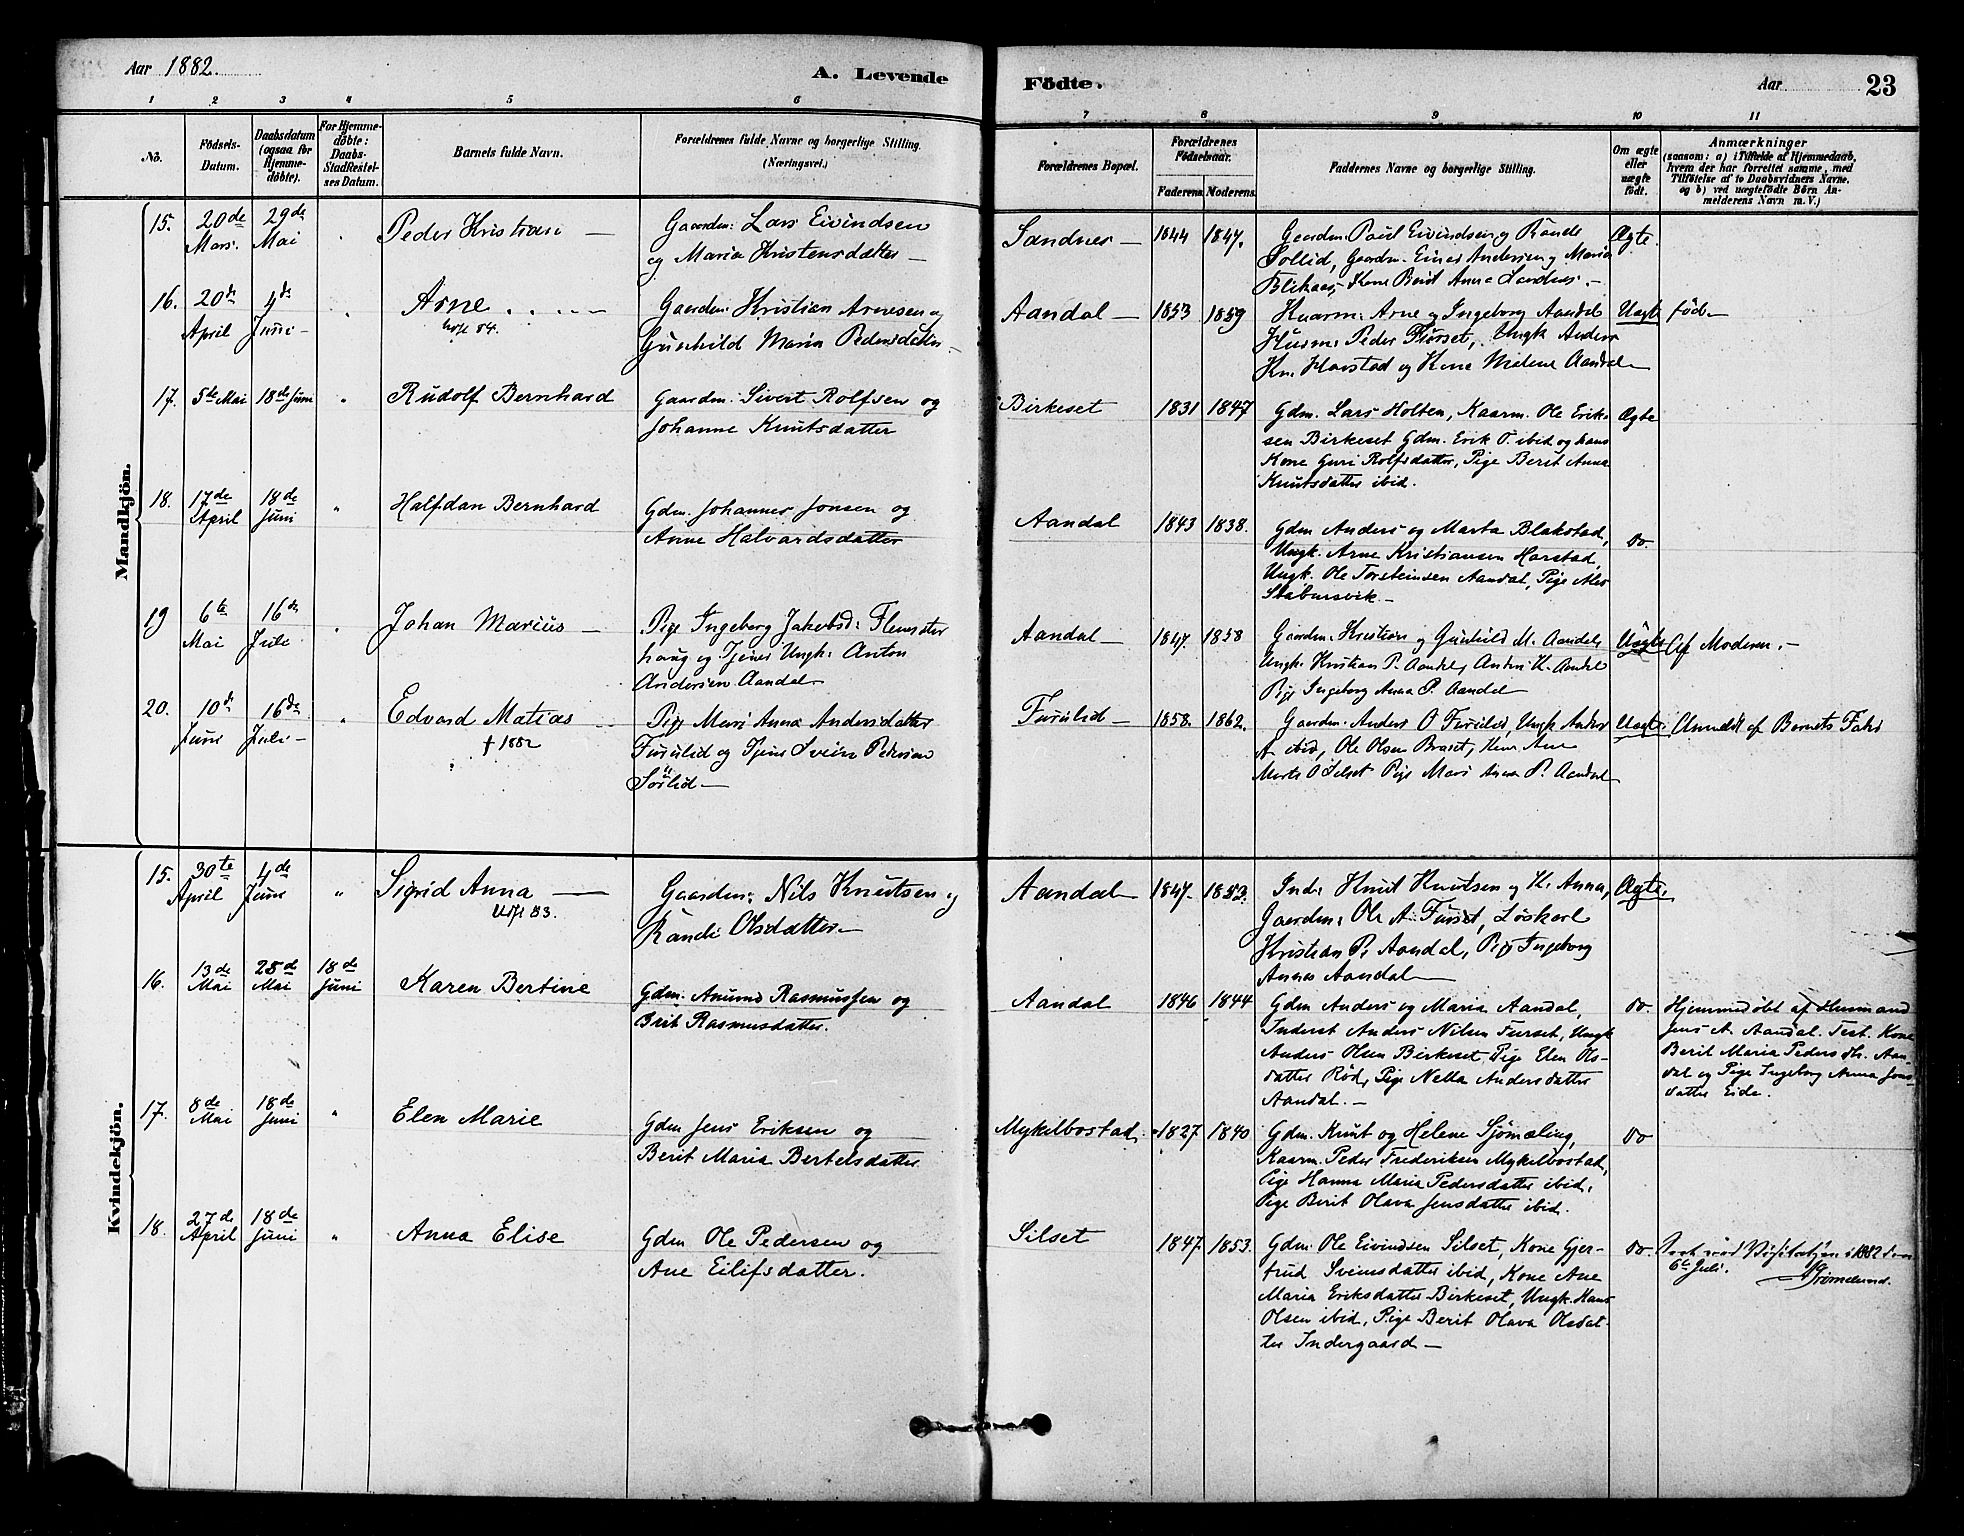 Aar 1882.
A. Levende
1 2 3 4 5 6
No.
Födsels-
Datum.
Daabsdatum
(ogsaa for
Hjemme-
döbte).
For Hjemme-
döbte:
Daabs-
Stadfæstel-
ses Datum.
Barnets fulde Navn.
Forældrenes fulde Navne og borgerlige Stilling.
(Næringsvei.)
Mandkjön.
15. 20de Mars. 29de Mai Peder Kristian — Gaardm: Lars Eivindsen
og Maria Kristensdatter —
16. 20de April 4de Juni — " Arne Gaardm: Kristian Arnesen og
Gunhild Maria Pedersdatter —
17. 5te Mai 18de Juni " Rudolf Bernhard Gaardm: Sivert Rolfsen og
Johanne Knutsdatter
18. 17de April 18de Juni " Halfdan Bernhard Gdm. Johannes Jonsen og
Anne Halvardsdatter
19 6te Mai 16de Juli " Johan Marius — Pige Ingeborg Jakobsd:
haug og Tjener Ungk: Anton
Andersen Aandal
20. 10de Juni 16de Juli — " Edvard Matias Pige Mari Anna Andersdatter
† 1882
Furulid og Tjener Svein Pedersen
Sörlid —
Kvindekjön.
15. 30te April 4de Juni " Sigrid Anna — Gaardm: Nils Knutsen og
Randi Olsdatter —
16. 13de Mai 25de Mai 18de Juni Karen Bertine Gdm. Anund Rasmussen og
Brit Rasmusdatter.
17. 8de Mai 18de Juni " Elen Marie Gdm Jens Eriksen og
Berit Maria Bertelsdatter
18. 27de April 18de Juni " Anna Elise Gdm Ole Pedersen og
Ane Eilifsdatter.
Födte.
Aar
23
7 8 9 10 11
Forældrenes Bopæl.
Forældrenes
Födselsaar.
Faderens. Moderens.
Faddernes Navne og borgerlige Stilling.
Om ægte
eller
uægte
födt.
Anmærkninger
(saasom: a) i Tilfælde af Hjemmedaab,
hvem der har forrettet samme, med
Tilföielse af to Daabsvidners Navne,
og b) ved uægtefödte Börn An-
melderens Navn m. V.)
Sandnes — 1844 1847. Gaardm: Paul Eivindsen og Rande Ægte.
Sollid, Gaardm. Einer Andersen og Maria
Blikaas, Kone Berit Anna Sandnes. —
Aandal — 1853 1859 Kaarm: Arne og Ingeborg Aandal Uægt. fød —
Husm: Peder Furset, Ungk Anders
Kr. Harstad og Kone Malene Aandal
Birkeset 1831 1847 Gdm. Lars Holten, Kaarm. Ole Erik- Ægte
sen Birkeset Gdm. Erik O. ibid og hans
Kone Guri Rolfsdatter, Pige Berit Anna
Knutsdatter ibid.
Aandal 1843 1838. Gdm Anders og Marta Blakstad, do.
Ungk. Arne Kristiansen Harstad,
Ungk. Ole Torsteinsen Aandal, Pige
Stabursvik —
Aandal — 1847. 1858 Gaardm: Kristian og Gunhild M. Aandal, Uægte Af Moderen. —
Ungk. Kristian P. Aandal, Anders K. Aandal
Pige Ingeborg Anna P. Aandal
Furulid — 1858. 1862. Gaardm: Anders O Furulid, Ungk Anders Uægte. Anmeldt af Barnets Fader
A ibid, Ole Olsen Braset, Kone Ane
Marte O Silset Pige Mari Anna P. Aandal
Aandal 1847. 1853. Ind: Knut Knutsen og K. Anna, Ægte.
Gaardm: Ole A. Furset, Løskarl
Kristian P. Aandal, Pige Ingeborg
Annas Aandal —
Aandal 1846 1844 Gdm Anders og Maria Aandal, do. Hjemmedøbt af Husmand
Inderst Anders Nilsen Furset, Ungk Jens A. Aandal. Test. Kone
Anders Olsen Birkeset, Pige Elen Ols- Berit Maria Pedersdtr. Aan-
datter Rød, Pige Nella Andersdatter dal og Pige Ingeborg Anna Jons-
Aandal. — datter Eide.
Mykelbostad. 1827 1840 Gdm. Knut og Helene Sjömæling, do
Kaarm. Peder Frederiksen Mykelbostad,
Pige Hanna Maria Pedersdatter ibid,
Pige Berit Olava Jensdatter ibid.
Silset 1847. 1853. Gdm. Ole Eivindsen Silset, Kone Gjer- do. Visitatsen i 1882 den
trud Sveinsdatter ibid, Kone Ane 6te Juli.
Maria Eriksdatter Birkeset, Ungk. Hans
Olsen ibid, Pige Berit Olava Olsdat-
ter Indergaard —